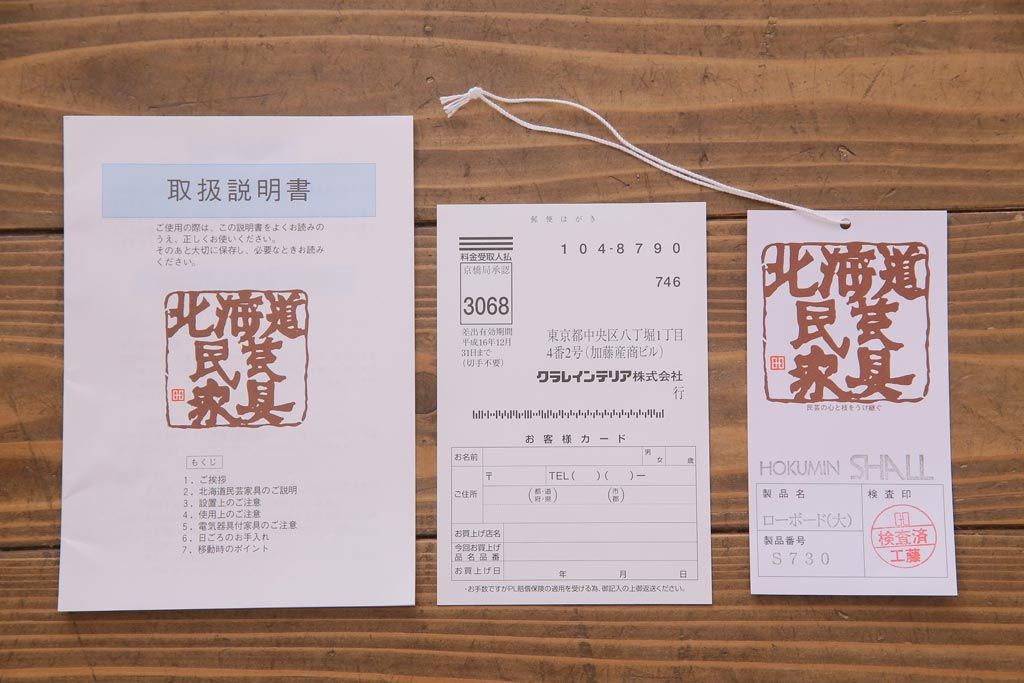 取扱説明書
ご使用の際は、この説明書をよくお読みの
うえ、正しくお使いください。
そのあと大切に保存し、必要なときお読み
ください。
北海道
民芸
家具
もくじ
1．ご挨拶
2．北海道民芸家具のご説明
3．設置上のご注意
4．使用上のご注意
5．電気器具付家具のご注意
6．日ごろのお手入れ
7．移動時のポイント
郵便はがき
料金受取人払
104-8790
京橋局承認
3068
746
差出有効期間
平成16年12月
31日まで
(切手不要)
東京都中央区八丁堀1丁目
4番2号(加藤産商ビル)
クラレインテリア株式会社
行
お客様カード
お名前
男
女
歳
ご住所
〒
TEL( )( )ー
(都・道 府・県)
(市 郡)
お買上げ店名
今回お買上げ
品名品番
お買上げ日
年 月 日
・お手数ですがPL賠償保険の適用を受ける為、御記入の上御返送ください。
北海道
民芸
家具
民芸の心と技をうけ継ぐ
HOKUMIN SHALL
製品名
検査印
ローボード(大)
製品番号
S730
検査済
工藤